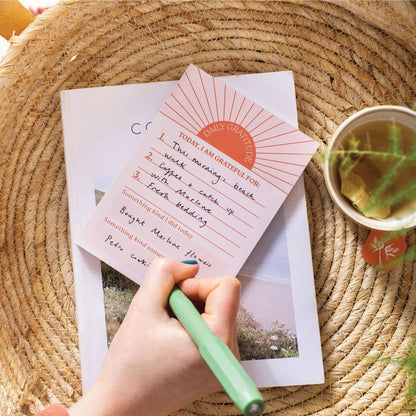 CO
DAILY GRATITUDE
TODAY, I AM GRATEFUL FOR:
1. This morning, beach
walk
2. Coffee + catch up
with Marlene
3. Fresh bedding
Something kind I did today
Bought Marlene flowers
Something kind some
Pedro